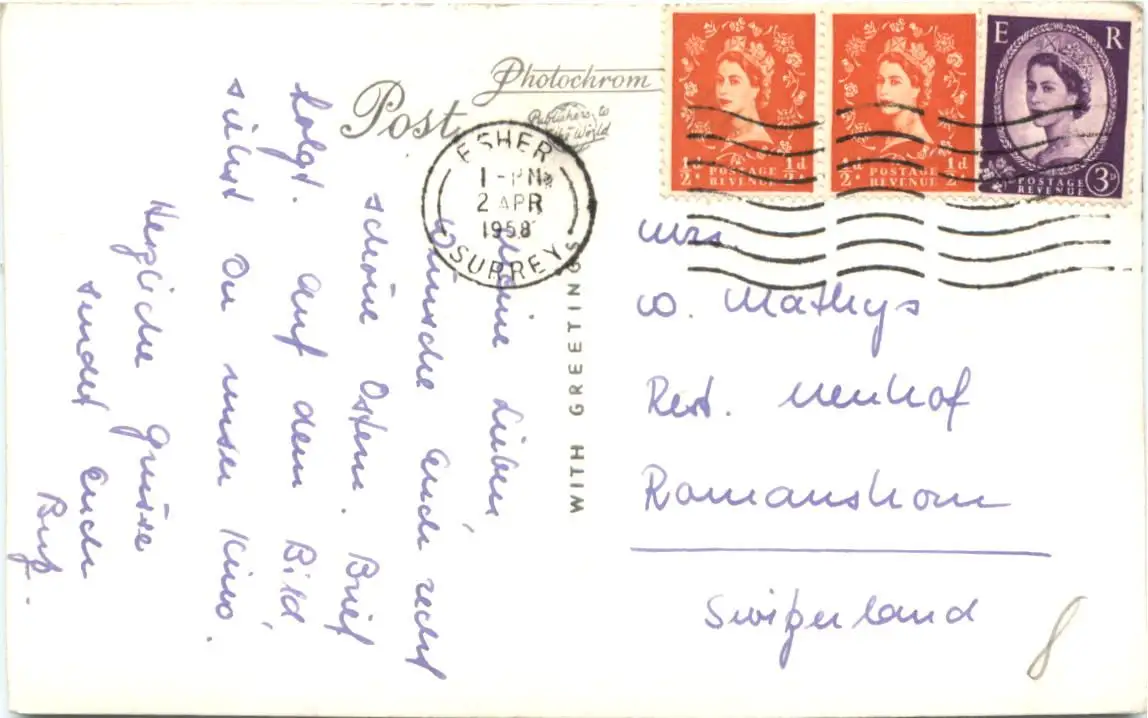 Post
Photochrom
Publishers to
the World
ESHER
1-PM
2 APR
1958
SURREY
½d ½d
POSTAGE
REVENUE
½d ½d
POSTAGE
REVENUE
E R
POSTAGE
REVENUE
3D
WITH GREETINGS
Meine Lieben,
Wünsche Euch recht
schöne Ostern. Brief
folgt. Auf dem Bild,
siehst Du unser Kino.
Herzliche Grüsse
sendet Euch
Mrs
W. Mathys
Rest. Neuhof
Romanshorn
Switzerland
8